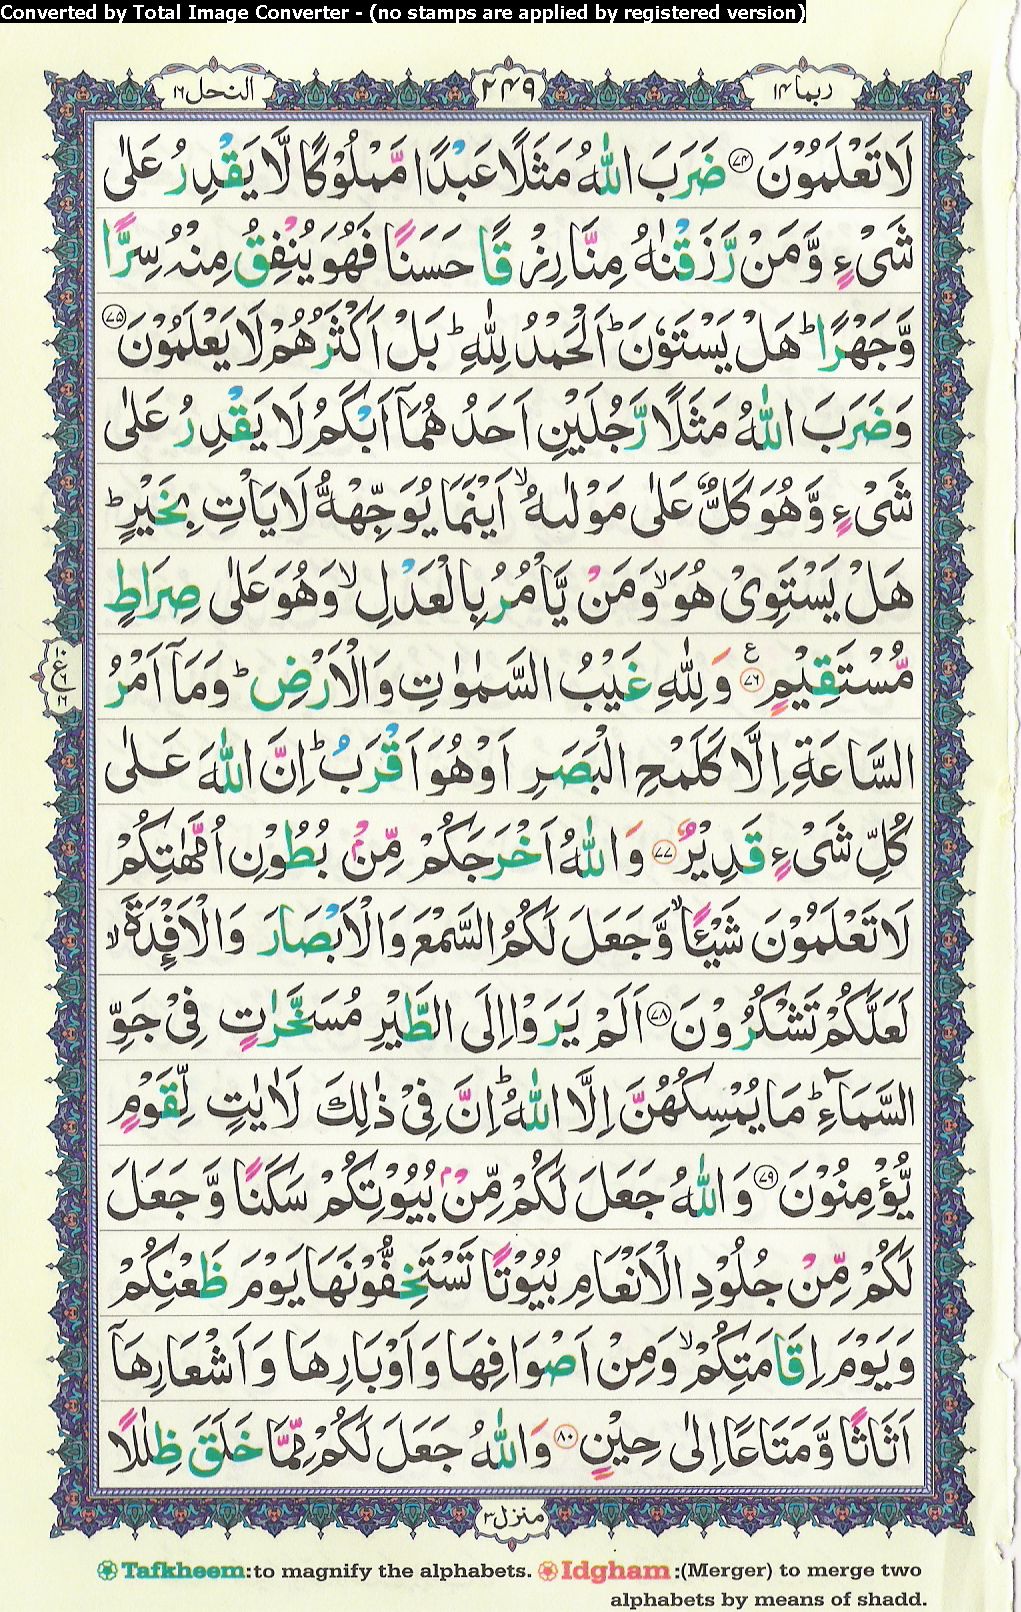 Converted by Total Image Converter - (no stamps are applied by registered version)
ربما ١۴
٢۴٩
النحل ١٦
لَا تَعْلَمُوْنَ ﴿۷۴﴾ ضَرَبَ اللّٰهُ مَثَلًا عَبْدًا مَّمْلُوْكًا لَّا يَقْدِرُ عَلٰى
شَیْءٍ وَّمَنْ رَّزَقْنٰهُ مِنَّا رِزْقًا حَسَنًا فَهُوَ يُنْفِقُ مِنْهُ سِرًّا
وَّجَهْرًا ؕ هَلْ يَسْتَوٗنَ ؕ اَلْحَمْدُ لِلّٰهِ ؕ بَلْ اَكْثَرُهُمْ لَا يَعْلَمُوْنَ ﴿۷۵﴾
وَضَرَبَ اللّٰهُ مَثَلًا رَّجُلَيْنِ اَحَدُهُمَاۤ اَبْكَمُ لَا يَقْدِرُ عَلٰى
شَیْءٍ وَّهُوَ كَلٌّ عَلٰى مَوْلٰىهُ ۙ اَيْنَمَا يُوَجِّهْهُّ لَا يَاْتِ بِخَيْرٍ ؕ
هَلْ يَسْتَوِیْ هُوَ ۙ وَمَنْ يَّاْمُرُ بِالْعَدْلِ ۙ وَهُوَ عَلٰى صِرَاطٍ
مُّسْتَقِيْمٍ ﴿۷۶﴾ ع وَلِلّٰهِ غَيْبُ السَّمٰوٰتِ وَالْاَرْضِ ؕ وَمَاۤ اَمْرُ
السَّاعَةِ اِلَّا كَلَمْحِ الْبَصَرِ اَوْ هُوَ اَقْرَبُ ؕ اِنَّ اللّٰهَ عَلٰى
كُلِّ شَیْءٍ قَدِيْرٌ ﴿۷۷﴾ وَاللّٰهُ اَخْرَجَكُمْ مِّنْۢ بُطُوْنِ اُمَّهٰتِكُمْ
لَا تَعْلَمُوْنَ شَيْـًٔا ۙ وَّجَعَلَ لَكُمُ السَّمْعَ وَالْاَبْصَارَ وَالْاَفْـِٕدَةَ ۙ
لَعَلَّكُمْ تَشْكُرُوْنَ ﴿۷۸﴾ اَلَمْ يَرَوْا اِلَى الطَّيْرِ مُسَخَّرٰتٍ فِیْ جَوِّ
السَّمَآءِ ؕ مَا يُمْسِكُهُنَّ اِلَّا اللّٰهُ ؕ اِنَّ فِیْ ذٰلِكَ لَاٰيٰتٍ لِّقَوْمٍ
يُّؤْمِنُوْنَ ﴿۷۹﴾ وَاللّٰهُ جَعَلَ لَكُمْ مِّنْۢ بُيُوْتِكُمْ سَكَنًا وَّجَعَلَ
لَكُمْ مِّنْ جُلُوْدِ الْاَنْعَامِ بُيُوْتًا تَسْتَخِفُّوْنَهَا يَوْمَ ظَعْنِكُمْ
وَيَوْمَ اِقَامَتِكُمْ ۙ وَمِنْ اَصْوَافِهَا وَاَوْبَارِهَا وَاَشْعَارِهَاۤ
اَثَاثًا وَّمَتَاعًا اِلٰى حِيْنٍ ﴿۸۰﴾ وَاللّٰهُ جَعَلَ لَكُمْ مِّمَّا خَلَقَ ظِلٰلًا
منزل ٣
Tafkheem:to magnify the alphabets. Idgham :(Merger) to merge two
alphabets by means of shadd.